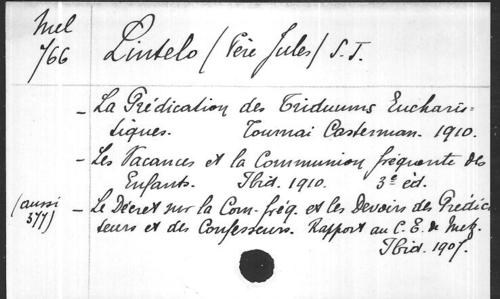 Mel
766
Lintelo (Père Jules) S.J.
- La Prédication des Triduums Eucharis-
tiques. Tournai Casterman. 1910.
- Les Vacances et la Communion fréquente des
Enfants. Ibid. 1910. 3e éd.
(aussi
377)
- Le Décret sur la Com. fréq. et les Devoirs des Prédica
teurs et des Confesseurs. Rapport au C. E. de Metz.
Ibid. 1907.